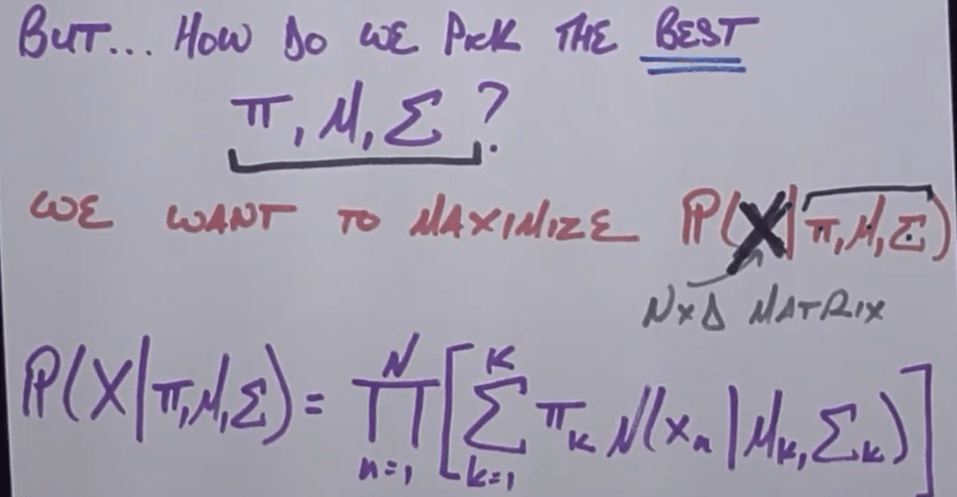 BUT... HOW DO WE PICK THE BEST
π, μ, Σ ?
WE WANT TO MAXIMIZE P(X|π,μ,Σ)
N×D MATRIX
P(X|π,μ,Σ) = ∏_{n=1}^{N} [ ∑_{k=1}^{K} π_k N(x_n | μ_k, Σ_k) ]